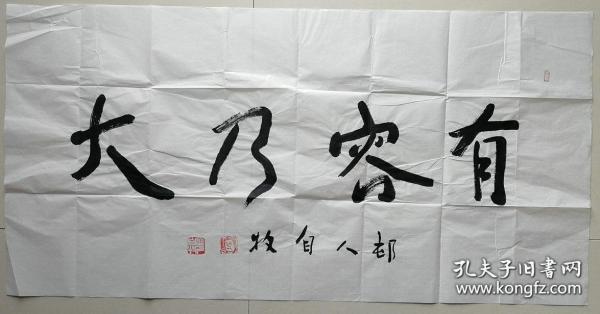 有容乃大
邨人自牧
孔夫子旧书网
www.kongfz.com